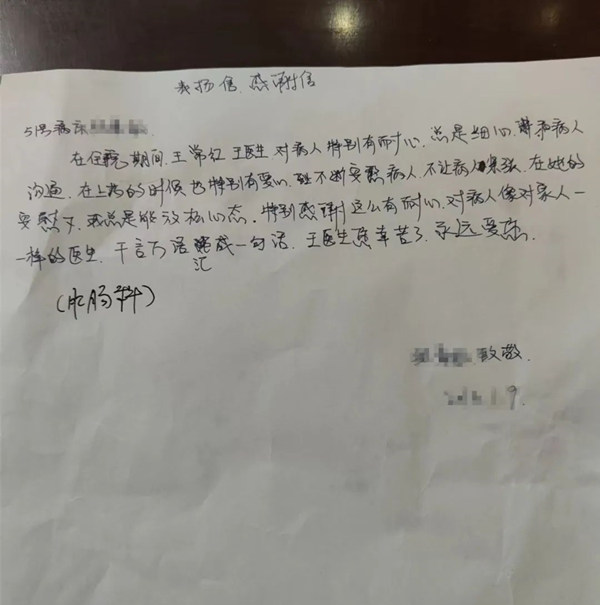 表扬信、感谢信
51号病床
在住院期间、王常红王医生对病人特别有耐心。总是细心、 和病人
沟通。在上药的时候也特别有爱心、 不断安慰病人、不让病人紧张、在她的
安慰下、我总是能放松心态。特别感谢这么有耐心、对病人像对家人一
一样的医生。千言万语 汇成一句话、王医生您辛苦了、永远爱您。
(肛肠科)
致敬.
9.